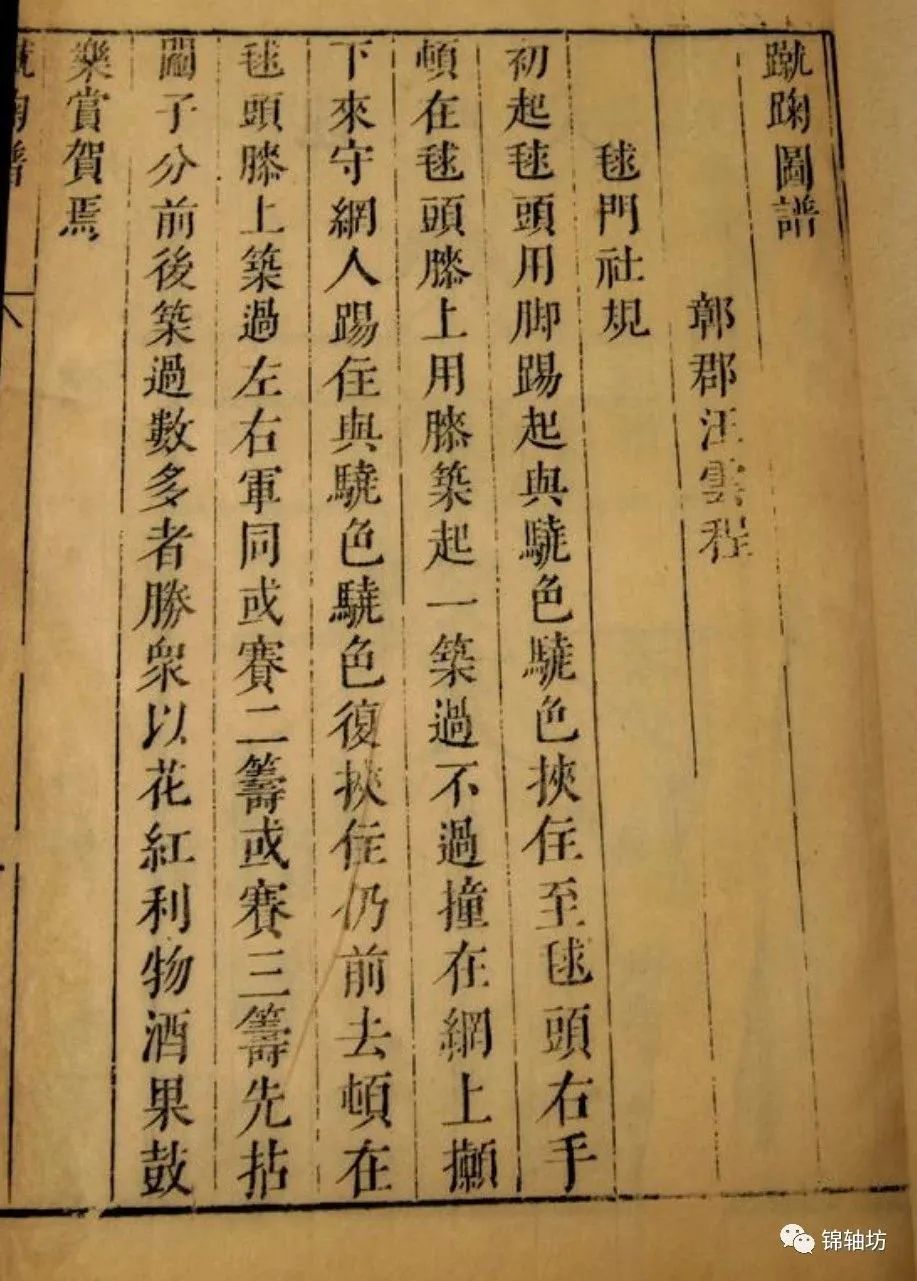 蹴踘圖譜
鄣郡汪雲程
毬門社規
初起毬頭用脚踢起與驍色驍色挾住至毬頭右手
頓在毬頭膝上用膝築起一築過不過撞在網上攧
下來守網人踢住與驍色驍色復挾住仍前去頓在
毬頭膝上築過左右軍同或賽二籌或賽三籌先拈
鬮子分前後築過數多者勝衆以花紅利物酒果鼓
樂賞賀焉
锦轴坊